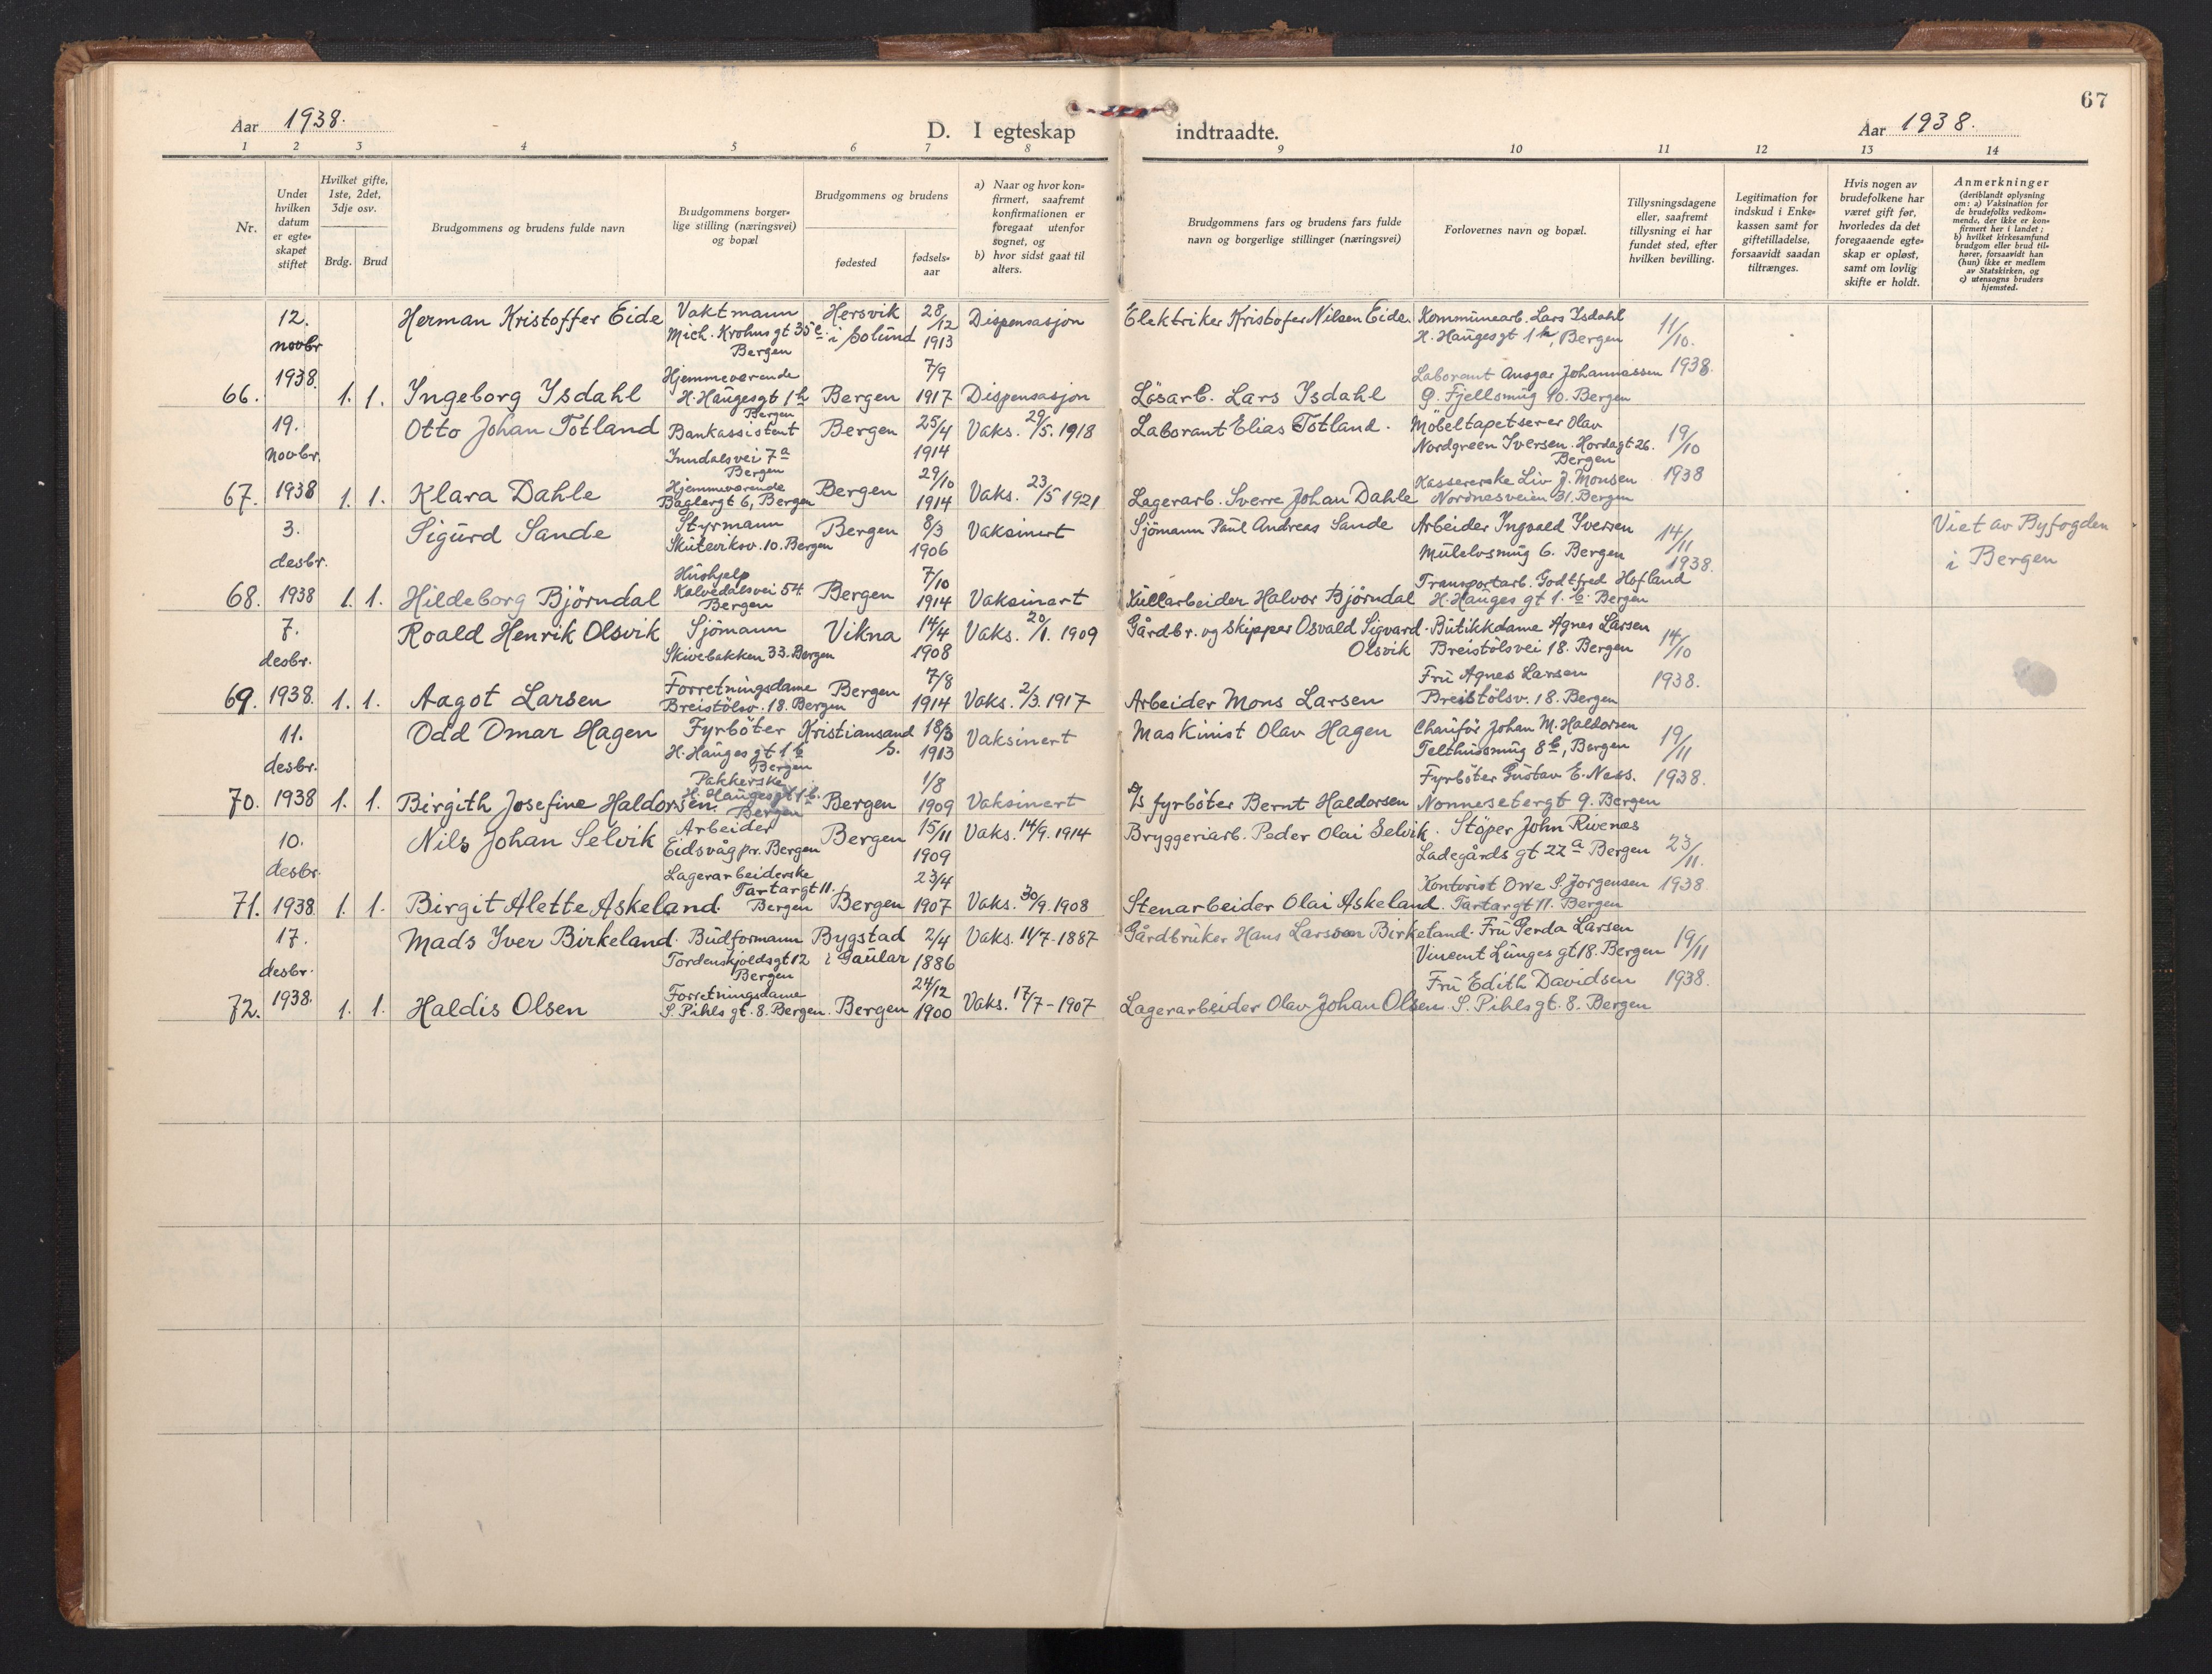 67
Aar 1938.
D. I egteskap indtraadte.
Aar 1938.
1 2 3 4 5 6 7 8 9 10 11 12 13 14
Nr.
Under hvilken datum er egte- skapet stiftet
Hvilket gifte, 1ste, 2det, 3dje osv.
Brdg. Brud
Brudgommens og brudens fulde navn
Brudgommens borger- lige stilling (næringsvei) og bopæl
Brudgommens og brudens
fødested
fødsels- aar
a) Naar og hvor kon- firmert, saafremt konfirmationen er foregaat utenfor sognet, og
b) hvor sidst gaat til alters.
Brudgommens fars og brudens fars fulde navn og borgerlige stillinger (næringsvei)
Forlovernes navn og bopæl.
Tillysningsdagene eller, saafremt tillysning ei har fundet sted, efter hvilken bevilling.
Legitimation for indskud i Enke- kassen samt for giftetilladelse, forsaavidt saadan tiltrænges.
Hvis nogen av brudefolkene har været gift før, hvorledes da det foregaaende egte- skap er opløst, samt om lovlig skifte er holdt.
Anmerkninger
(deriblandt oplysning om: a) Vaksination for de brudefolks vedkom- mende, der ikke er kon- firmert her i landet; b) hvilket kirkesamfund brudgom eller brud til- hører, forsaavidt han (hun) ikke er medlem av Statskirken, og c) utensogns bruders hjemsted.
66. 12. novbr 1938. 1. 1.
Herman Kristoffer Eide Vaktmann Mich. Krohnsgt 35e Bergen Hersvik i Solund 28/12 1913 Dispensasjon
Elektriker Kristofer Nilsen Eide. Kommunearb. Lars Isdahl H. Haugesgt 1b, Bergen 11/10. 1938.
Ingeborg Isdahl Hjemmeværende H. Haugesgt 1b Bergen Bergen 7/9 1917 Dispensasjon
Løsarb. Lars Isdahl Laborant Ansgar Johannessen Ø. Fjellsmug 10. Bergen
67. 19. novbr. 1938 1. 1.
Otto Johan Totland Bankassistent Inndalsvei 7a Bergen Bergen 25/4 1914 Vaks. 29/5. 1918
Laborant Elias Totland. Möbeltapetserer Olav Nordgreen Iversen. Hordagt 26. Bergen 19/10 1938
Klara Dahle Hjemmeværende Baglergt 6, Bergen Bergen 29/10 1914 Vaks. 23/5 1921
Lagerarb. Sverre Johan Dahle Kassererske Liv J. Monsen Nordnesveien 31. Bergen
68. 3. desbr. 1938 1. 1.
Sigurd Sande Styrmann Skuteviksv. 10. Bergen Bergen 8/3 1906 Vaksinert
Sjömann Paul Andreas Sande Arbeider Ingvald Iversen Mulelvsmug 6. Bergen 14/11 1938.
Viet av Byfogden i Bergen
Hildeborg Björndal Hushjelp Kalvedalsvei 54 Bergen Bergen 7/10 1914 Vaksinert
Kullarbeider Halvor Björndal Transportarb. Godtfred Hofland H. Hauges gt 1. b. Bergen
69. 7. desbr. 1938. 1. 1.
Roald Henrik Olsvik Sjömann Skivebakken 33. Bergen Vikna 14/4 1908 Vaks. 20/1. 1909
Gårdbr. og Skipper Osvald Sigvard Olsvik Butikkdame Agnes Larsen Breistölsvei 18. Bergen 14/10 1938.
Aagot Larsen Forretningsdame Breistölsv. 18. Bergen Bergen 7/8 1914 Vaks. 2/3. 1917
Arbeider Mons Larsen Fru Agnes Larsen Breistölsv. 18. Bergen
70. 11. desbr. 1938 1. 1.
Odd Omar Hagen Fyrböter H. Hauges gt 1 b Bergen Kristiansand S. 18/3 1913 Vaksinert
Maskinist Olav Hagen Chauför Johan M. Haldorsen Telthussmug 8b, Bergen 19/11 1938.
Birgith Josefine Haldorsen. Pakkerske H. Haugesgt 1b. Bergen Bergen 1/8 1909 Vaksinert
D/S fyrböter Bernt Haldorsen Fyrböter Gustav E. Ness. Nonnesetergt 9. Bergen
71. 10. desbr. 1938 1. 1.
Nils Johan Selvik Arbeider Eidsvåg pr. Bergen Bergen 15/11 1909 Vaks. 14/9. 1914
Bryggeriarb. Peder Olai Selvik. Stöper John Rivenes Ladegårds gt 22a Bergen 23/11. 1938
Birgit Alette Askeland. Lagerarbeiderske Tartargt 11. Bergen Bergen 23/4 1907 Vaks. 30/9. 1908
Stenarbeider Olai Askeland. Kontorist Owe S. Jorgensen Tartargt 11. Bergen
72. 17. desbr. 1938. 1. 1.
Mads Iver Birkeland. Budformann Tordenskjoldsgt 12 Bergen Bygstad i Gaular 2/4 1886 Vaks. 11/7-1887
Gårdbruker Hans Larsson Birkeland. Fru Gerda Larsen Vincent Lunges gt 18. Bergen 19/11 1938.
Haldis Olsen Forretningsdame S. Pihls gt. 8. Bergen. Bergen 24/12 1900 Vaks. 17/7-1907
Lagerarbeider Olav Johan Olsen. Fru Edith Davidsen S. Pihlsgt. 8. Bergen